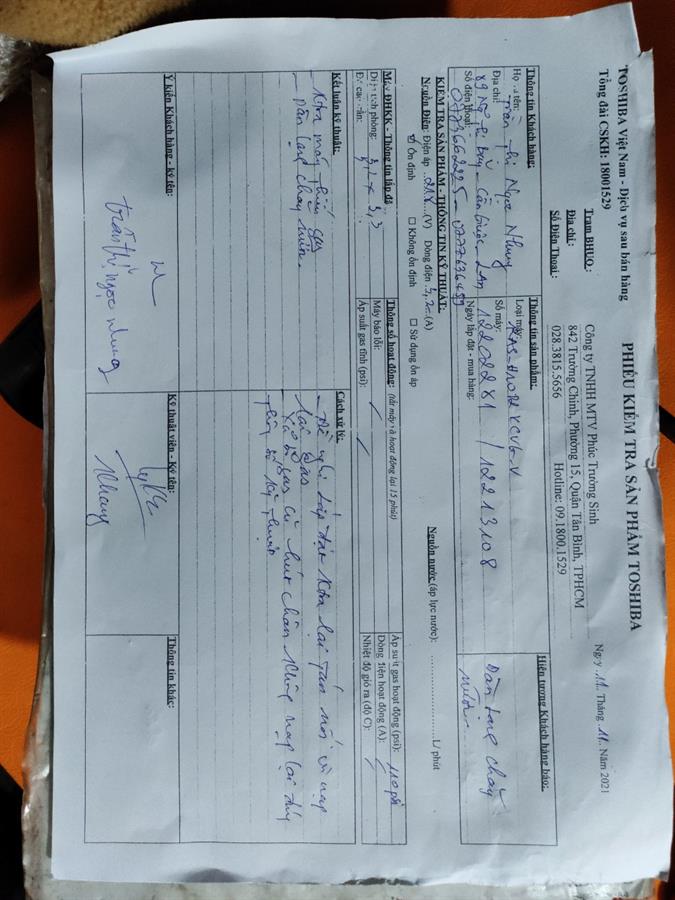 TOSHIBA Việt Nam - Dịch vụ sau bán hàng
Tổng đài CSKH: 18001529
PHIẾU KIỂM TRA SẢN PHẨM TOSHIBA
Ngày 11 Tháng 11 Năm 2021
Trạm BHUQ: Công ty TNHH MTV Phúc Trường Sinh
Địa chỉ: 842 Trường Chinh, Phường 15, Quận Tân Bình, TPHCM
Số Điện Thoại: 028.3815.5656 Hotline: 09.1800.1529
Thông tin Khách hàng:
Họ và tên:
Trần Thị Ngọc Nhung
Địa chỉ:
Số điện thoại:
0773662225 -
Thông tin sản phẩm:
Loại máy:
Số máy:
12202281 / 12213108
Ngày lắp đặt - mua hàng:
Hiện tượng Khách hàng báo:
Dàn lạnh chảy
nước.
KIỂM TRA SẢN PHẨM - THÔNG TIN KỸ THUẬT:
Nguồn Điện: Điện áp 218 (V) Dòng điện 5,2 (A) Nguồn nước (áp lực nước): L/ phút
Ổn định Không ổn định Sử dụng ổn áp
Máy ĐHKK - Thông tin lắp đặt
Diện tích phòng:
Độ cao trần:
Thông số hoạt động: (tắt máy và hoạt động lại 15 phút)
Máy báo lỗi:
Áp suất gas tĩnh (psi):
Áp suất gas hoạt động (psi): 110 psi
Dòng điện hoạt động (A):
Nhiệt độ gió ra (độ C):
Kết luận kỹ thuật:
- Ktra máy thiếu gas
- Dàn lạnh chảy nước.
Cách xử lý:
- Đề nghị lắp đặt ktra lại tán nối vì nạp
lại gas
xả bỏ gas cũ hút chân không nạp lại đúng
thông số kỹ thuật
Ý kiến Khách hàng - ký tên:
Trần Thị Ngọc Nhung
Kỹ thuật viên - Ký tên:
Thông tin khác: